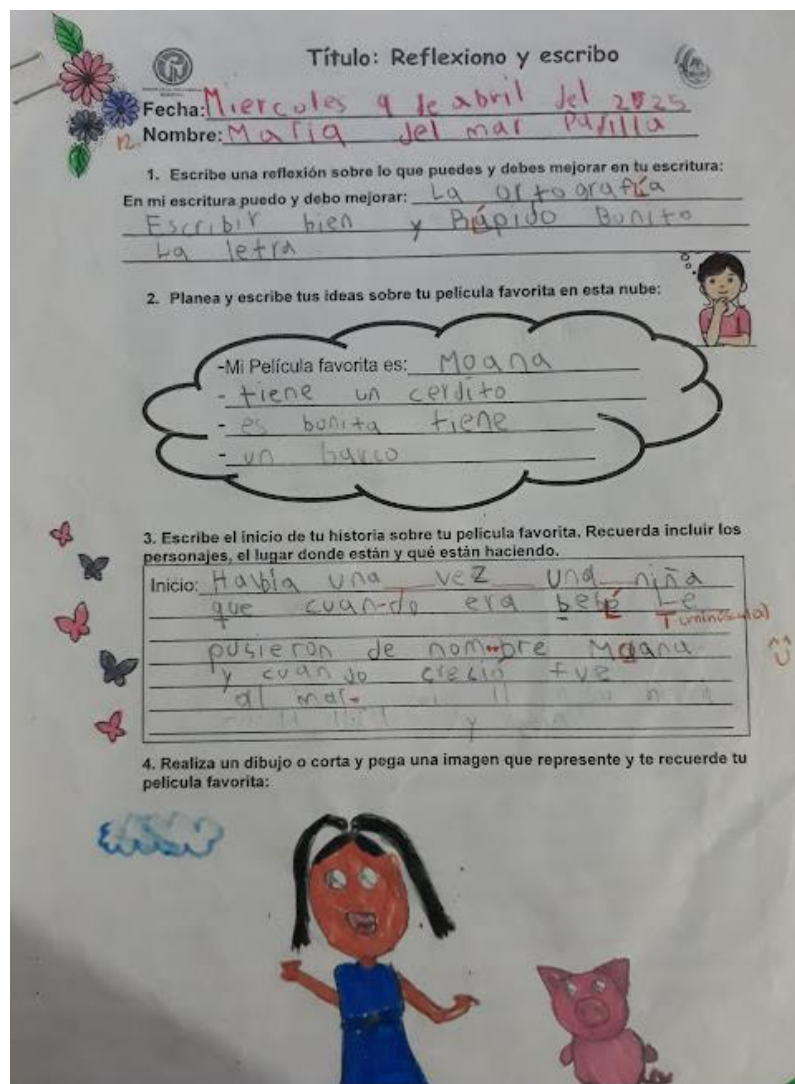 Título: Reflexiono y escribo
Fecha: Miercoles 9 de abril del 2025
12. Nombre: Maria del mar Padilla
1. Escribe una reflexión sobre lo que puedes y debes mejorar en tu escritura:
En mi escritura puedo y debo mejorar: La ortografía
Escribir bien y Rápido Bonito
La letra
2. Planea y escribe tus ideas sobre tu película favorita en esta nube:
-Mi Película favorita es: Moana
- tiene un cerdito
- es bonita tiene
- un barco
3. Escribe el inicio de tu historia sobre tu película favorita. Recuerda incluir los
personajes, el lugar donde están y qué están haciendo.
Inicio: Había una vez una niña
que cuando era bebé Le
(minúscula)
pusieron de nombre Moana
y cuando creció fue
al mar.
4. Realiza un dibujo o corta y pega una imagen que represente y te recuerde tu
película favorita: